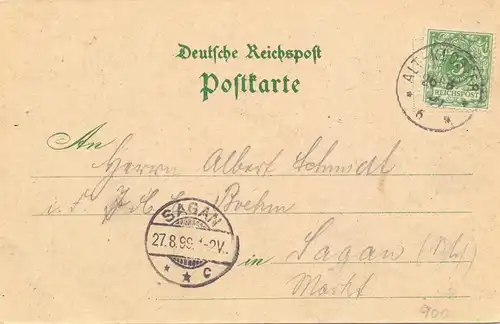 Deutsche Reichspost
Postkarte
5
REICHSPOST
An
Herrn Albert Schmidt
i. F. J. C. L. Boehm
SAGAN
27.8.99. 1-2V.
* * c
in Sagan
Markt
900